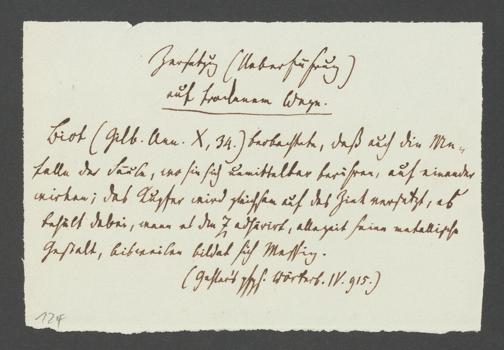 Zersetzung (Ueberführung)
auf trockenem Wege.
Biot (Gilb. Ann. X, 34.) beobachtete, daß auch die Me-
talle der Säule, wo sie sich unmittelbar berühren, auf einander
wirken; das Kupfer wird gleichsam auf das Zink versetzt, es
behält dabei, wenn es dem Z adhärirt, allezeit seine metallische
Gestalt, bisweilen bildet sich Messing.
(Gehler's phys. Wörterb. IV. 915.)
124